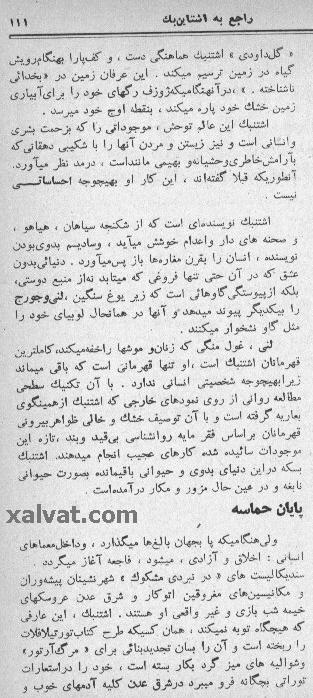 راجع به اشتاین‌بك
۱۱۱
« گل‌داودی » اشتنبك هماهنگی دست ، و کف‌پارا بهنگام‌رویش
گیاه در زمین ترسیم میکند . این عرفان زمین در «بخدائی
ناشناخته . » ،درآنهنگامیکه‌ژوزف رگهای خود را برای‌آبیاری
زمین خشك خود پاره میکند ، بنقطه اوج خود میرسد .
اشتنبك این عالم توحش ، موجوداتی را که بزحمت بشری
وانسانی است و نیز زیستن و مردن آنها را با شکیبی دهقانی‌که
بآرامش‌خاطری‌وحشیانه‌و بهیمی مانند‌است ، درمد نظر میآورد.
آنطوریکه قبلا گفته‌اند ، این کار او بهیچوجه احساساتـــی
نیست .
اشتنبك نویسنده‌ای است که از شکنجه سیاهان ، هیاهو ،
و صحنه های دار واعدام خوشش میآید ، وسادیسم بدوی‌بودن
نویسنده ، انسان را بقرن مغاره‌ها باز پس‌میآورد . دنیائی‌بدون
عشق که در آن حتی تنها فروغی که میتابد نه‌از منبع دوستی،
بلکه ازپیوستگی‌گاوهائی است که زیر یوغ سنگین ،لنی‌وجورج
را بیکدیگر پیوند میدهد و آنها در همانحال لوبیای خود را
مثل گاو نشخوار میکنند .
لنی ، غول منگی که زنان‌و موشها راخفه‌میکند،کاملترین
قهرمانان اشتنبك است ،او تنها قهرمانی است که باقی میماند
زیرا بهیچوجه شخصیتی انسانی ندارد . با آن تکنیك سطحی
مطالعه روانی از روی نمودهای خارجی که اشتنبك ازهمینگوی
بعاریه گرفته است و با آن توصیف خشك و خالی ظواهر‌بیرونی
قهرمانان براساس فقر مایه روانشناسی بی‌قید وبند ، تازه این
موجودات سائیده شده کارهای عجیب انجام میدهند. اشتنبك
بسکه در‌این دنیای بدوی و حیوانی باقیمانده بصورت حیوانی
نابغه و در عین حال مزور و مکار درآمده‌است .
پایان حماسه
xalvat.com
ولی‌هنگامیکه پا بجهان بالغ‌ها میگذارد ، وداخل‌معماهای
انسانی : اخلاق و آزادی ، میشود ، فاجعه آغاز میگردد .
سندیکالیست های « در نبردی مشکوك » شهر نشینان پیشه‌وران
و مکانیسین‌های مفروقین اتوکار و شرق عدن عروسکهای
خیمه شب بازی و غیر واقعی او هستند . اشتنبك ، این عارفی
که هیچگاه توبه نمیکند ، همان کسیکه طرح کتاب‌تورتیلافلات
را ریخته است و آن را بسان تجدیدبنائی برای « مرگ‌آرتور»
وشوالیه های میز گرد بکار بسته است ، خود را دراستعارات
توراتی بچگانه فرو میبرد درشرق عدن کلیه آدمهای خوب و